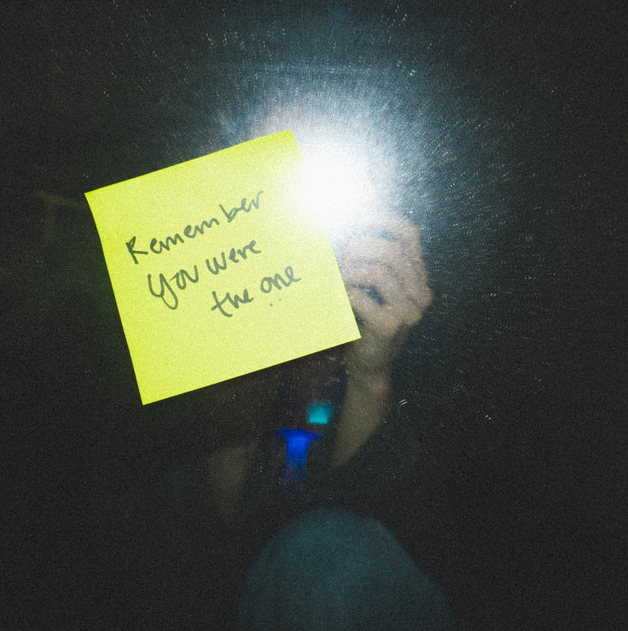 Remember
you were
the one..